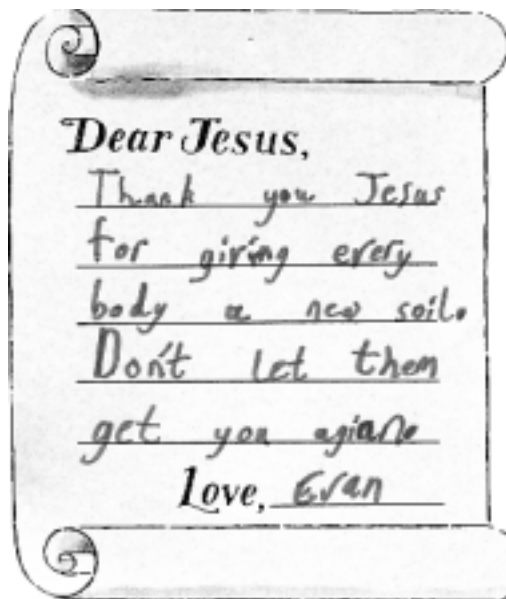 Dear Jesus,
Thank you Jesus
for giving every
body a new soil.
Don't let them
get you agian.
Love, Evan